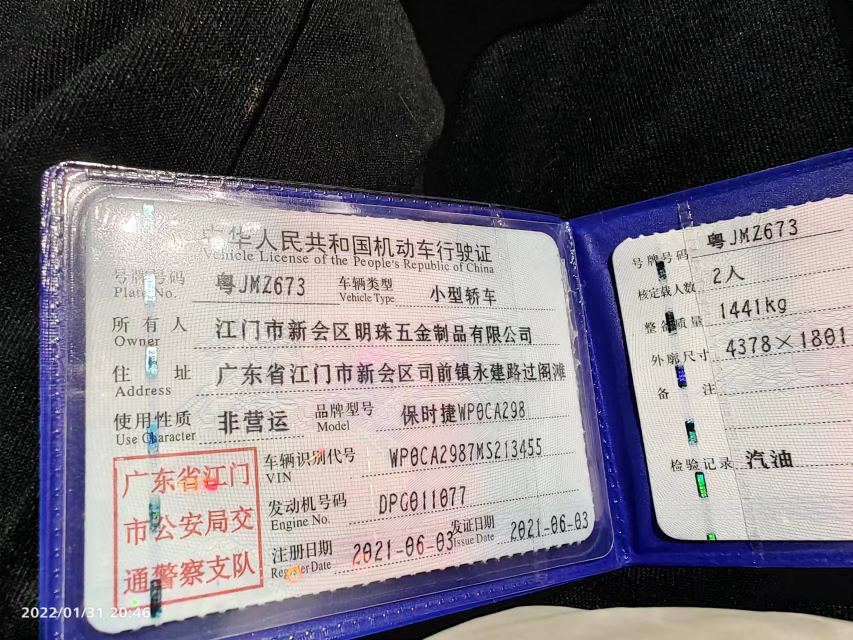 中华人民共和国机动车行驶证
Vehicle License of the People's Republic of China
号牌号码 粤JMZ673 车辆类型 小型轿车
Plate No. Vehicle Type
所有人 江门市新会区明珠五金制品有限公司
Owner
住址 广东省江门市新会区司前镇永建路过阁滩
Address
使用性质 非营运 品牌型号 保时捷WP0CA298
Use Character Model
车辆识别代号 WP0CA2987MS213455
VIN
发动机号码 DPC011077
Engine No.
注册日期 2021-06-03 发证日期 2021-06-03
Register Date Issue Date
广东省江门
市公安局交
通警察支队
号牌号码 粤JMZ673
核定载人数 2人
整备质量 1441kg
外廓尺寸 4378×1801
备注
检验记录 汽油
2022/01/31 20:46